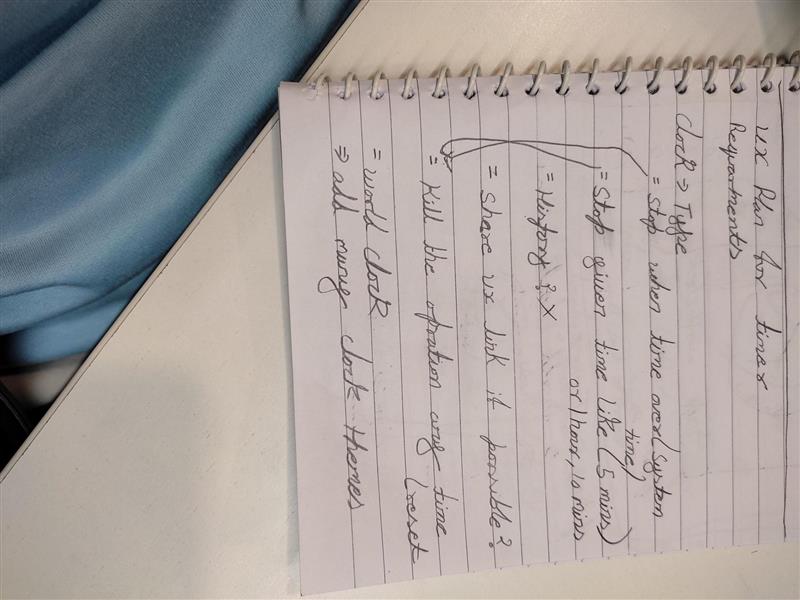 UX Plan for timer
Requartments
Clock => Type
= Stop when time over (System
time)
= Stop given time like (5 mins)
or 1 hour, 10 mins
= History ? X
= Share ux link it possible?
= Kill the opration any time
(reset
= World clock
=> add many clock themes